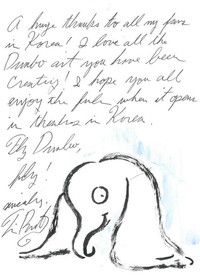 A huge thanks to all my fans
in Korea! I love all the
Dumbo art you have been
creating! I hope you all
enjoy the film when it opens
in theatres in Korea.
Fly Dumbo,
fly!
Tim Burton